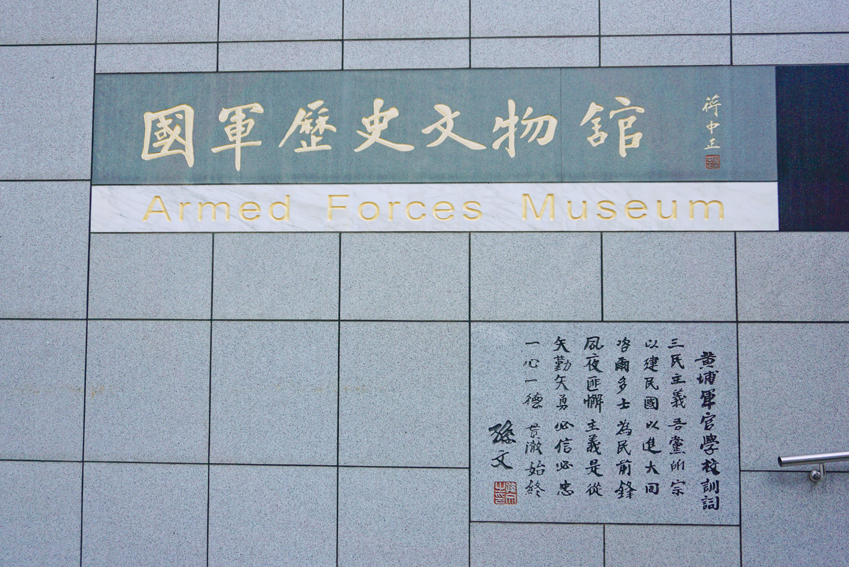 國軍歷史文物館
蔣中正
Armed Forces Museum
黃埔軍官學校訓詞
三民主義 吾黨所宗
以建民國 以進大同
咨爾多士 為民前鋒
夙夜匪懈 主義是從
矢勤矢勇 必信必忠
一心一德 貫澈始終
孫文
孫文之印